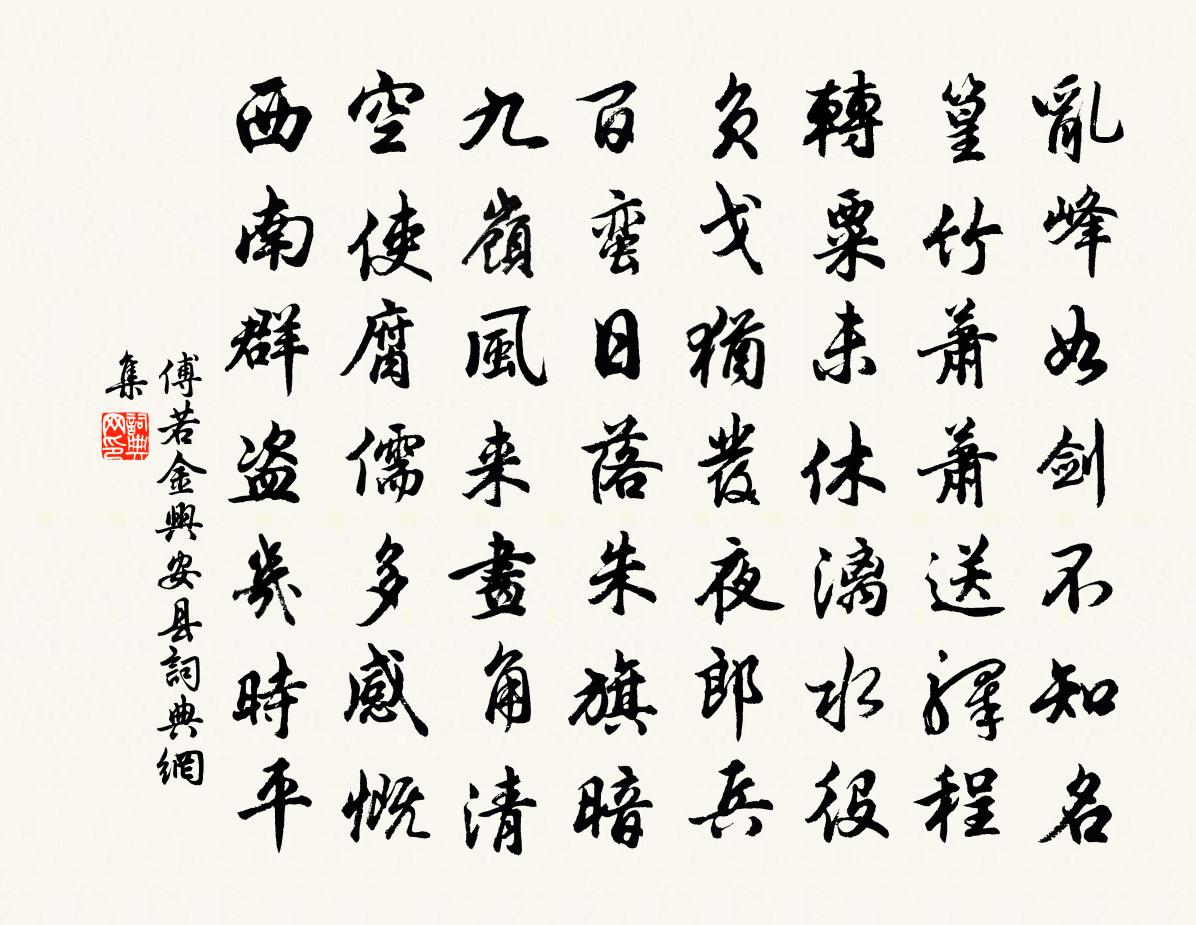 亂峰如剑不知名
篁竹萧萧送驛程
轉粟未休漓水役
負戈猶發夜郎兵
百蛮日落朱旗暗
九嶺風来畫角清
空使腐儒多感慨
西南群盗幾時平
傅若金興安县詞典網
集
詞典
网印